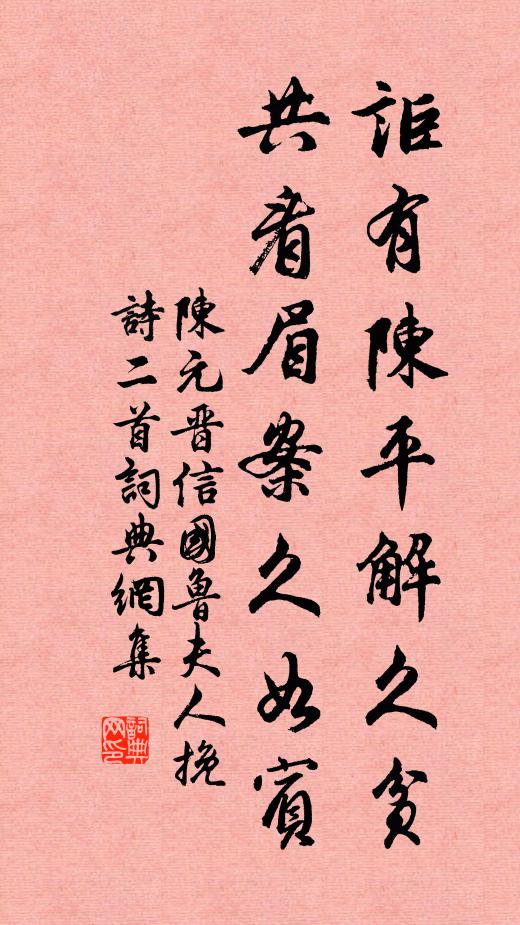 詎有陳平解久貧
共看眉案久如賓
陳元晋信國魯夫人挽
詩二首詞典網集
詞典
网印